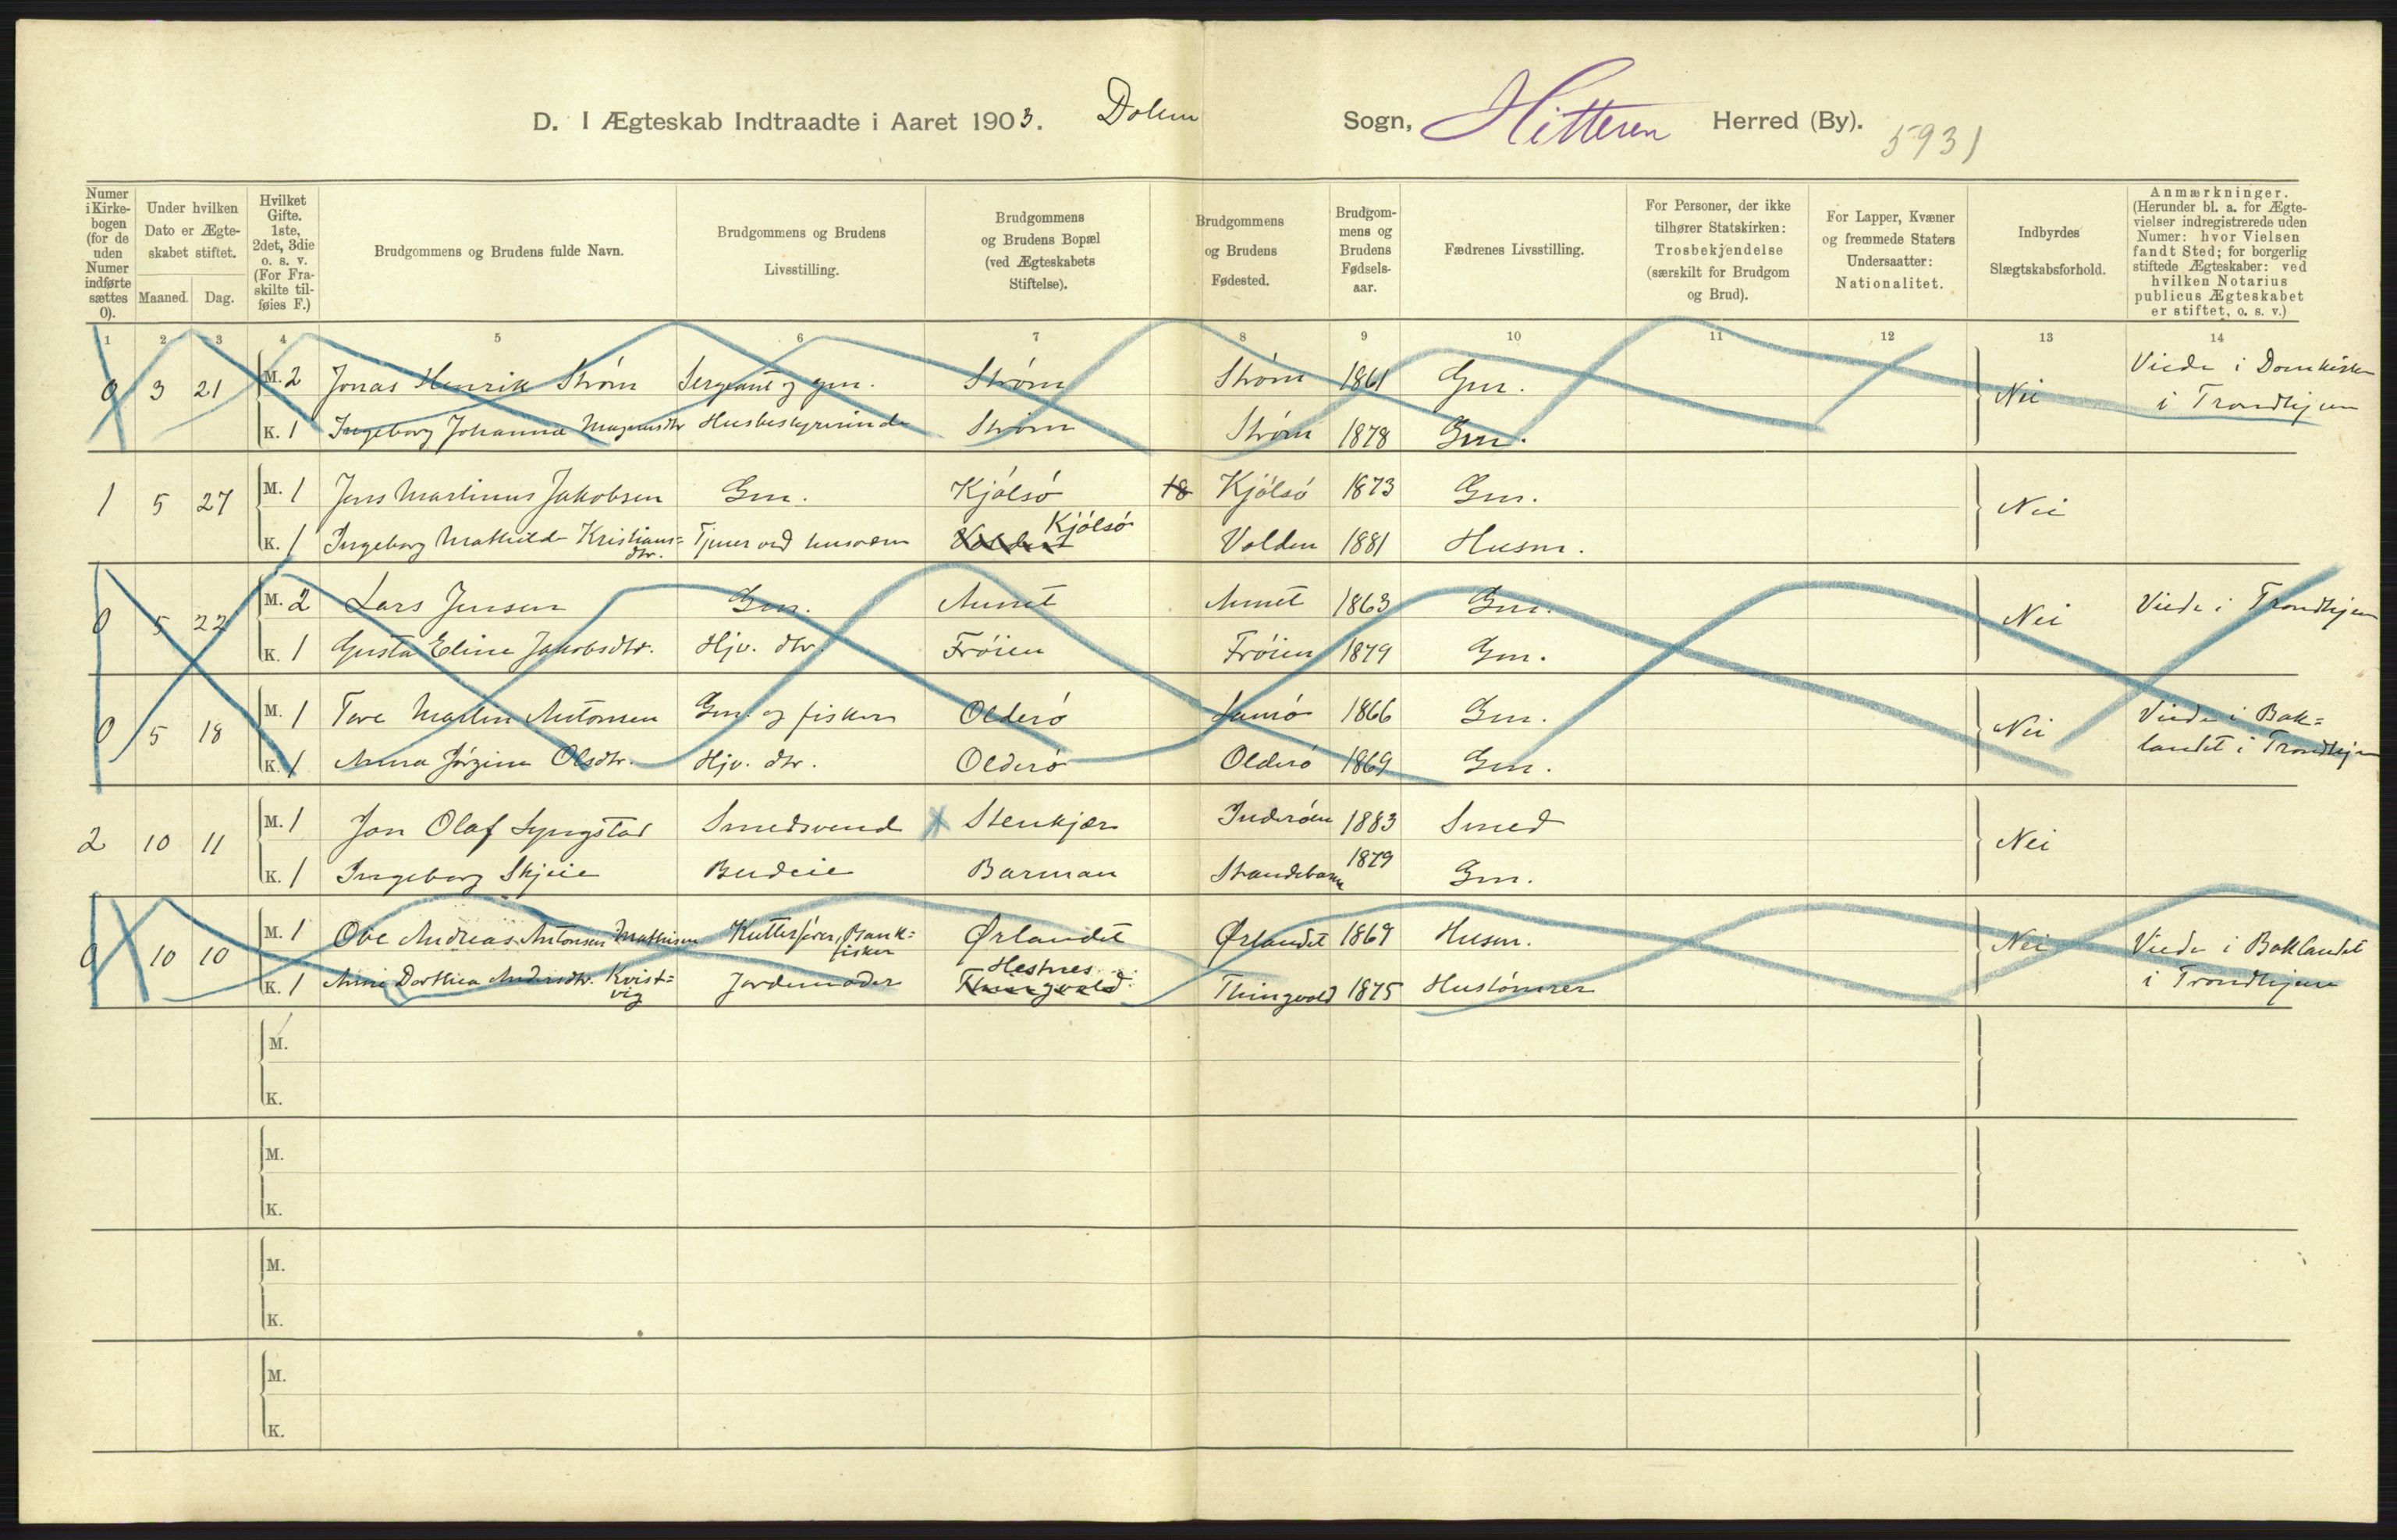 D. I Ægteskab Indtraadte i Aaret 1903. Dolm Sogn, Hitteren Herred (By). 5931
Numer i Kirkebogen (for de uden Numer indførte sættes 0).
Under hvilken Dato er Ægteskabet stiftet.
Maaned. Dag.
Hvilket Gifte. 1ste, 2det, 3die o. s. v. (For Fraskilte tilføies F.)
Brudgommens og Brudens fulde Navn.
Brudgommens og Brudens Livsstilling.
Brudgommens og Brudens Bopæl (ved Ægteskabets Stiftelse).
Brudgommens og Brudens Fødested.
Brudgommens og Brudens Fødselsaar.
Fædrenes Livsstilling.
For Personer, der ikke tilhører Statskirken: Trosbekjendelse (særskilt for Brudgom og Brud).
For Lapper, Kvæner og fremmede Staters Undersaatter: Nationalitet.
Indbyrdes Slægtskabsforhold.
Anmærkninger. (Herunder bl. a. for Ægtevielser indregistrerede uden Numer: hvor Vielsen fandt Sted; for borgerlig stiftede Ægteskaber: ved hvilken Notarius publicus Ægteskabet er stiftet, o. s. v.)
1 2 3 4 5 6 7 8 9 10 11 12 13 14
0 3 21 M. 2 Jonas Henrik Strøm Sergeant og gm. Strøm Strøm 1861 Gm. Nei Viede i Domkirken
i Trondhjem
K. 1 Ingeborg Johanna Magnusdtr Husbestyrerinde Strøm Strøm 1878 Gm.
1 5 27 M. 1 Jens Martinus Jakobsen Gm. Kjølsø 18 Kjølsø 1873 Gm. Nei
K. 1 Ingeborg Mathilde Kristians=
dtr. Tjener ved husvæsen Kjølsø Volden 1881 Husm.
0 5 22 M. 2 Lars Jensen Gm. Aunet Aunet 1863 Gm. Nei Viede i Trondhjem
K. 1 Gusta Eline Jakobsdtr. Hjv. dtr. Frøien Frøien 1879 Gm.
0 5 18 M. 1 Tore Martin Antonsen Gm. og fisker Olderø 1866 Gm. Nei Viede i Bak=
landet i Trondhjem
K. 1 Anna Jørgine Olsdtr. Hjv. dtr. Olderø Olderø 1869 Gm.
2 10 11 M. 1 Jon Olaf Lyngstad Smedsvend Stenkjær Inderøen 1883 Smed Nei
K. 1 Ingeborg Skjeie Budeie Barman Strandebarm 1879 Gm.
0 10 10 M. 1 Ove Andreas Antonsen Mathisen Kutterfører, Bank=
fisker Ørlandet Ørlandet 1869 Husm. Nei Viede i Baklandet
i Trondhjem
K. 1 Anne Dorthea Andersdtr. Kvist=
vig Jordemoder Hestnes Thingvold Thingvold 1875 Hustømrer
M.
K.
M.
K.
M.
K.
M.
K.